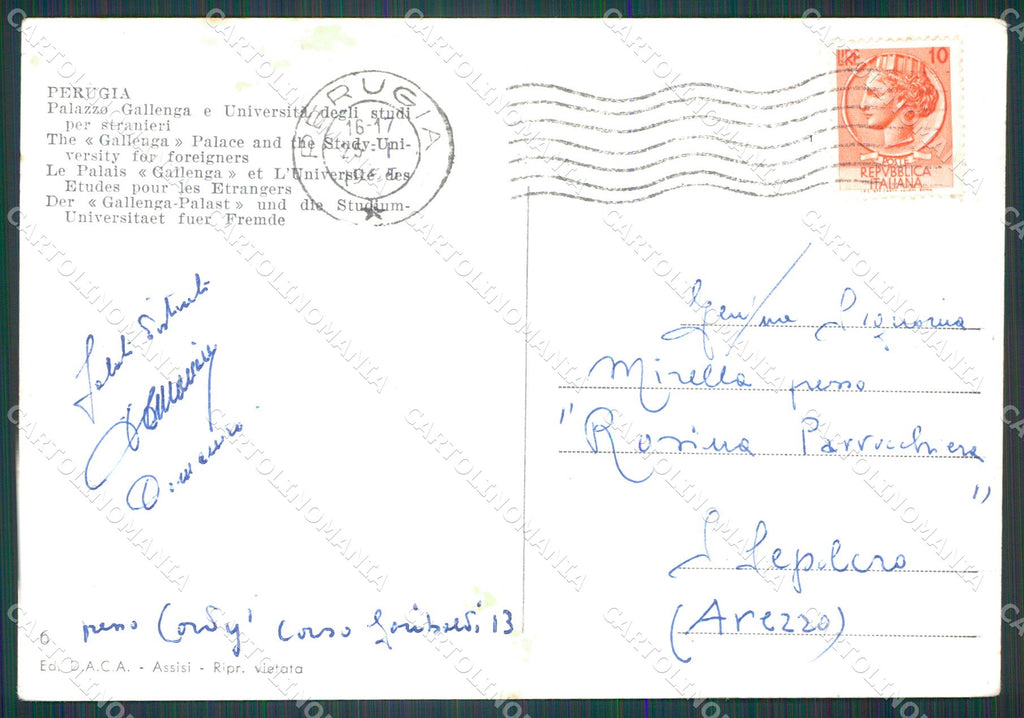 PERUGIA
Palazzo Gallenga e Università degli studi
per stranieri
The « Gallenga » Palace and the Study-Uni-
versity for foreigners
Le Palais « Gallenga » et L'Université des
Etudes pour les Etrangers
Der « Gallenga-Palast » und die Studium-
Universitaet fuer Fremde
PERUGIA
16-17
LIRE 10
POSTE
REPVBBLICA
ITALIANA
Saluti distinti
Gen/ma Signorina
Mirella presso
"Rosina Parrucchiera
"
S Sepolcro
(Arezzo)
presso Corso Garibaldi 13
6
Ed. D.A.C.A. - Assisi - Ripr. vietata
CARTOLINOMANIA